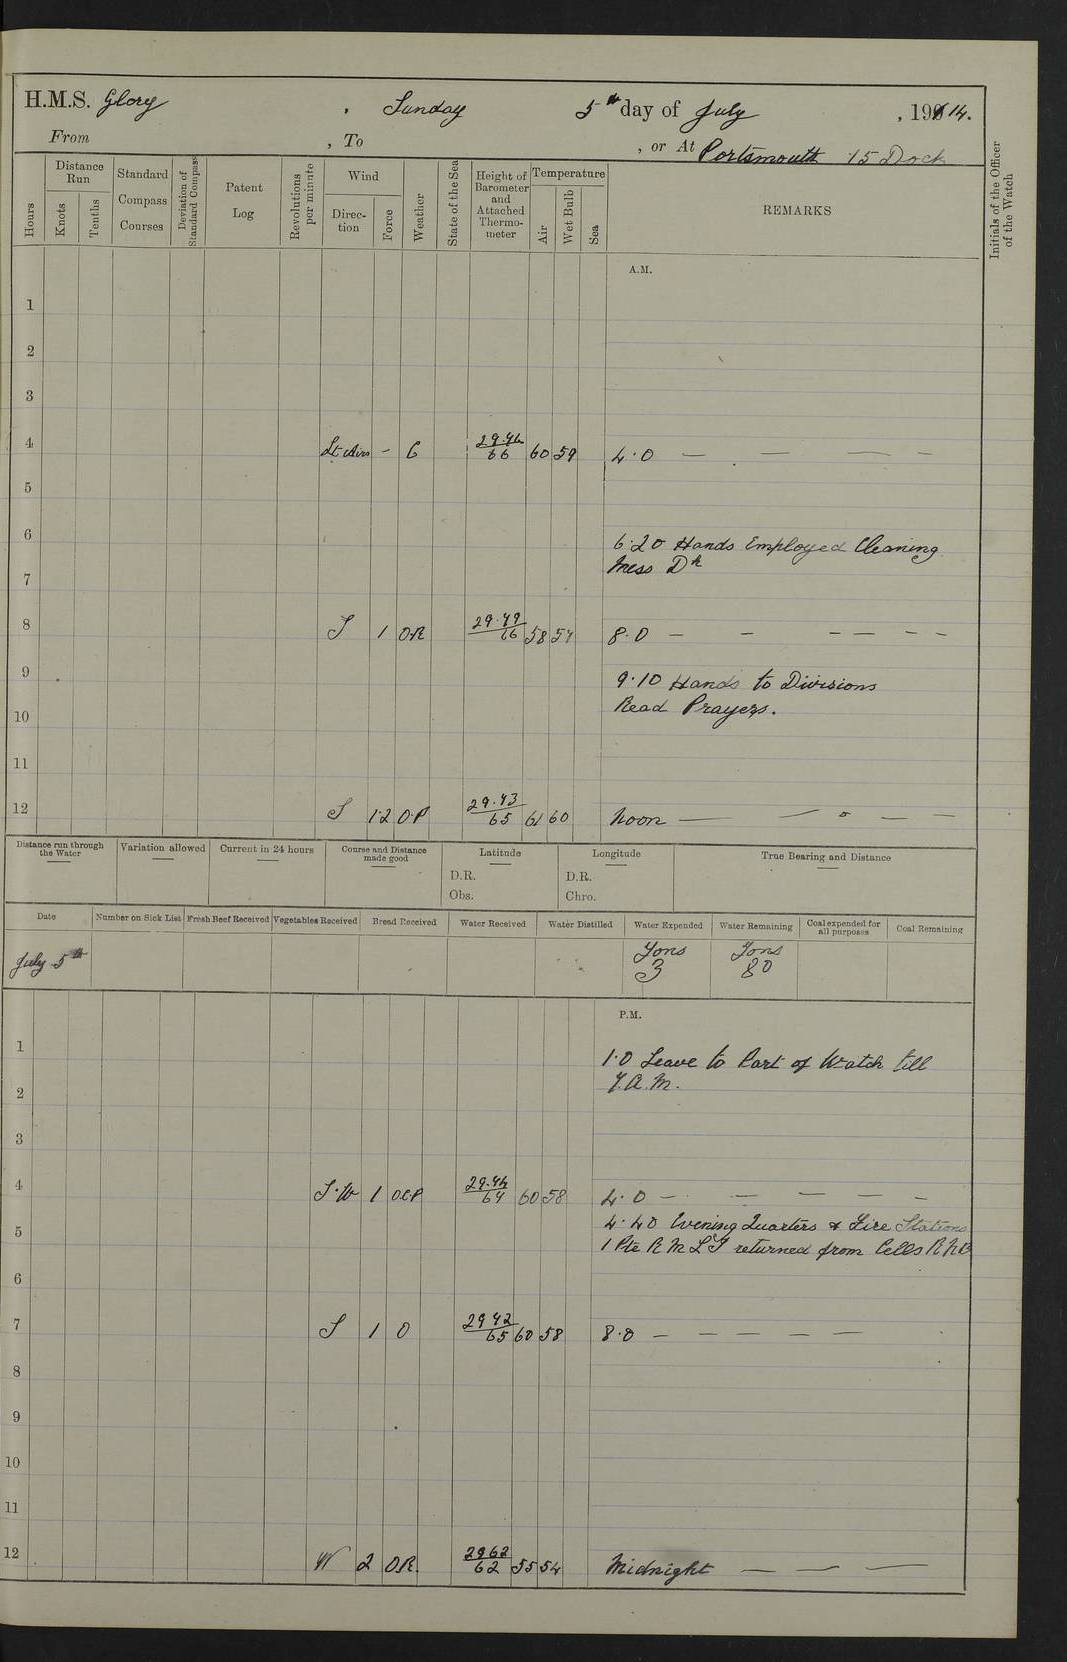 H.M.S. Glory, Sunday 5th day of July, 1914.
From , To , or At Portsmouth 15 Dock
Hours
Distance Run
Knots
Tenths
Standard Compass Courses
Deviation of Standard Compass
Patent Log
Revolutions per minute
Wind
Direction
Force
Weather
State of the Sea
Height of Barometer and Attached Thermometer
Temperature
Air
Wet Bulb
Sea
REMARKS
Initials of the Officer of the Watch
A.M.
1
2
3
4 Lt Airs - C 29.46 66 60 59 4.0 — — — —
5
6
6.20 Hands Employed Cleaning
Mess Dk
7
8 S 1 O.R 29.49 66 58 57 8.0 — — — — — —
9
9.10 Hands to Divisions
Read Prayers.
10
11
12 S 1.2 O.P 29.43 65 61 60 Noon — — — —
Distance run through the Water
Variation allowed
Current in 24 hours
Course and Distance made good
Latitude
D.R.
Obs.
Longitude
D.R.
Chro.
True Bearing and Distance
Date
Number on Sick List
Fresh Beef Received
Vegetables Received
Bread Received
Water Received
Water Distilled
Water Expended
Water Remaining
Coal expended for all purposes
Coal Remaining
July 5th Tons 3 Tons 80
P.M.
1
1.0 Leave to Part of Watch till
7. A.M.
2
3
4 S.W 1 O.C.P 29.44 64 60 58 4.0 — — — — —
4.40 Evening Quarters & Fire Stations
5
1 Pte R M L I returned from Cells R N B
6
7 S 1 O 29 42 65 60 58 8.0 — — — — —
8
9
10
11
12 W 2 O.R. 29 62 62 55 54 Midnight — — —